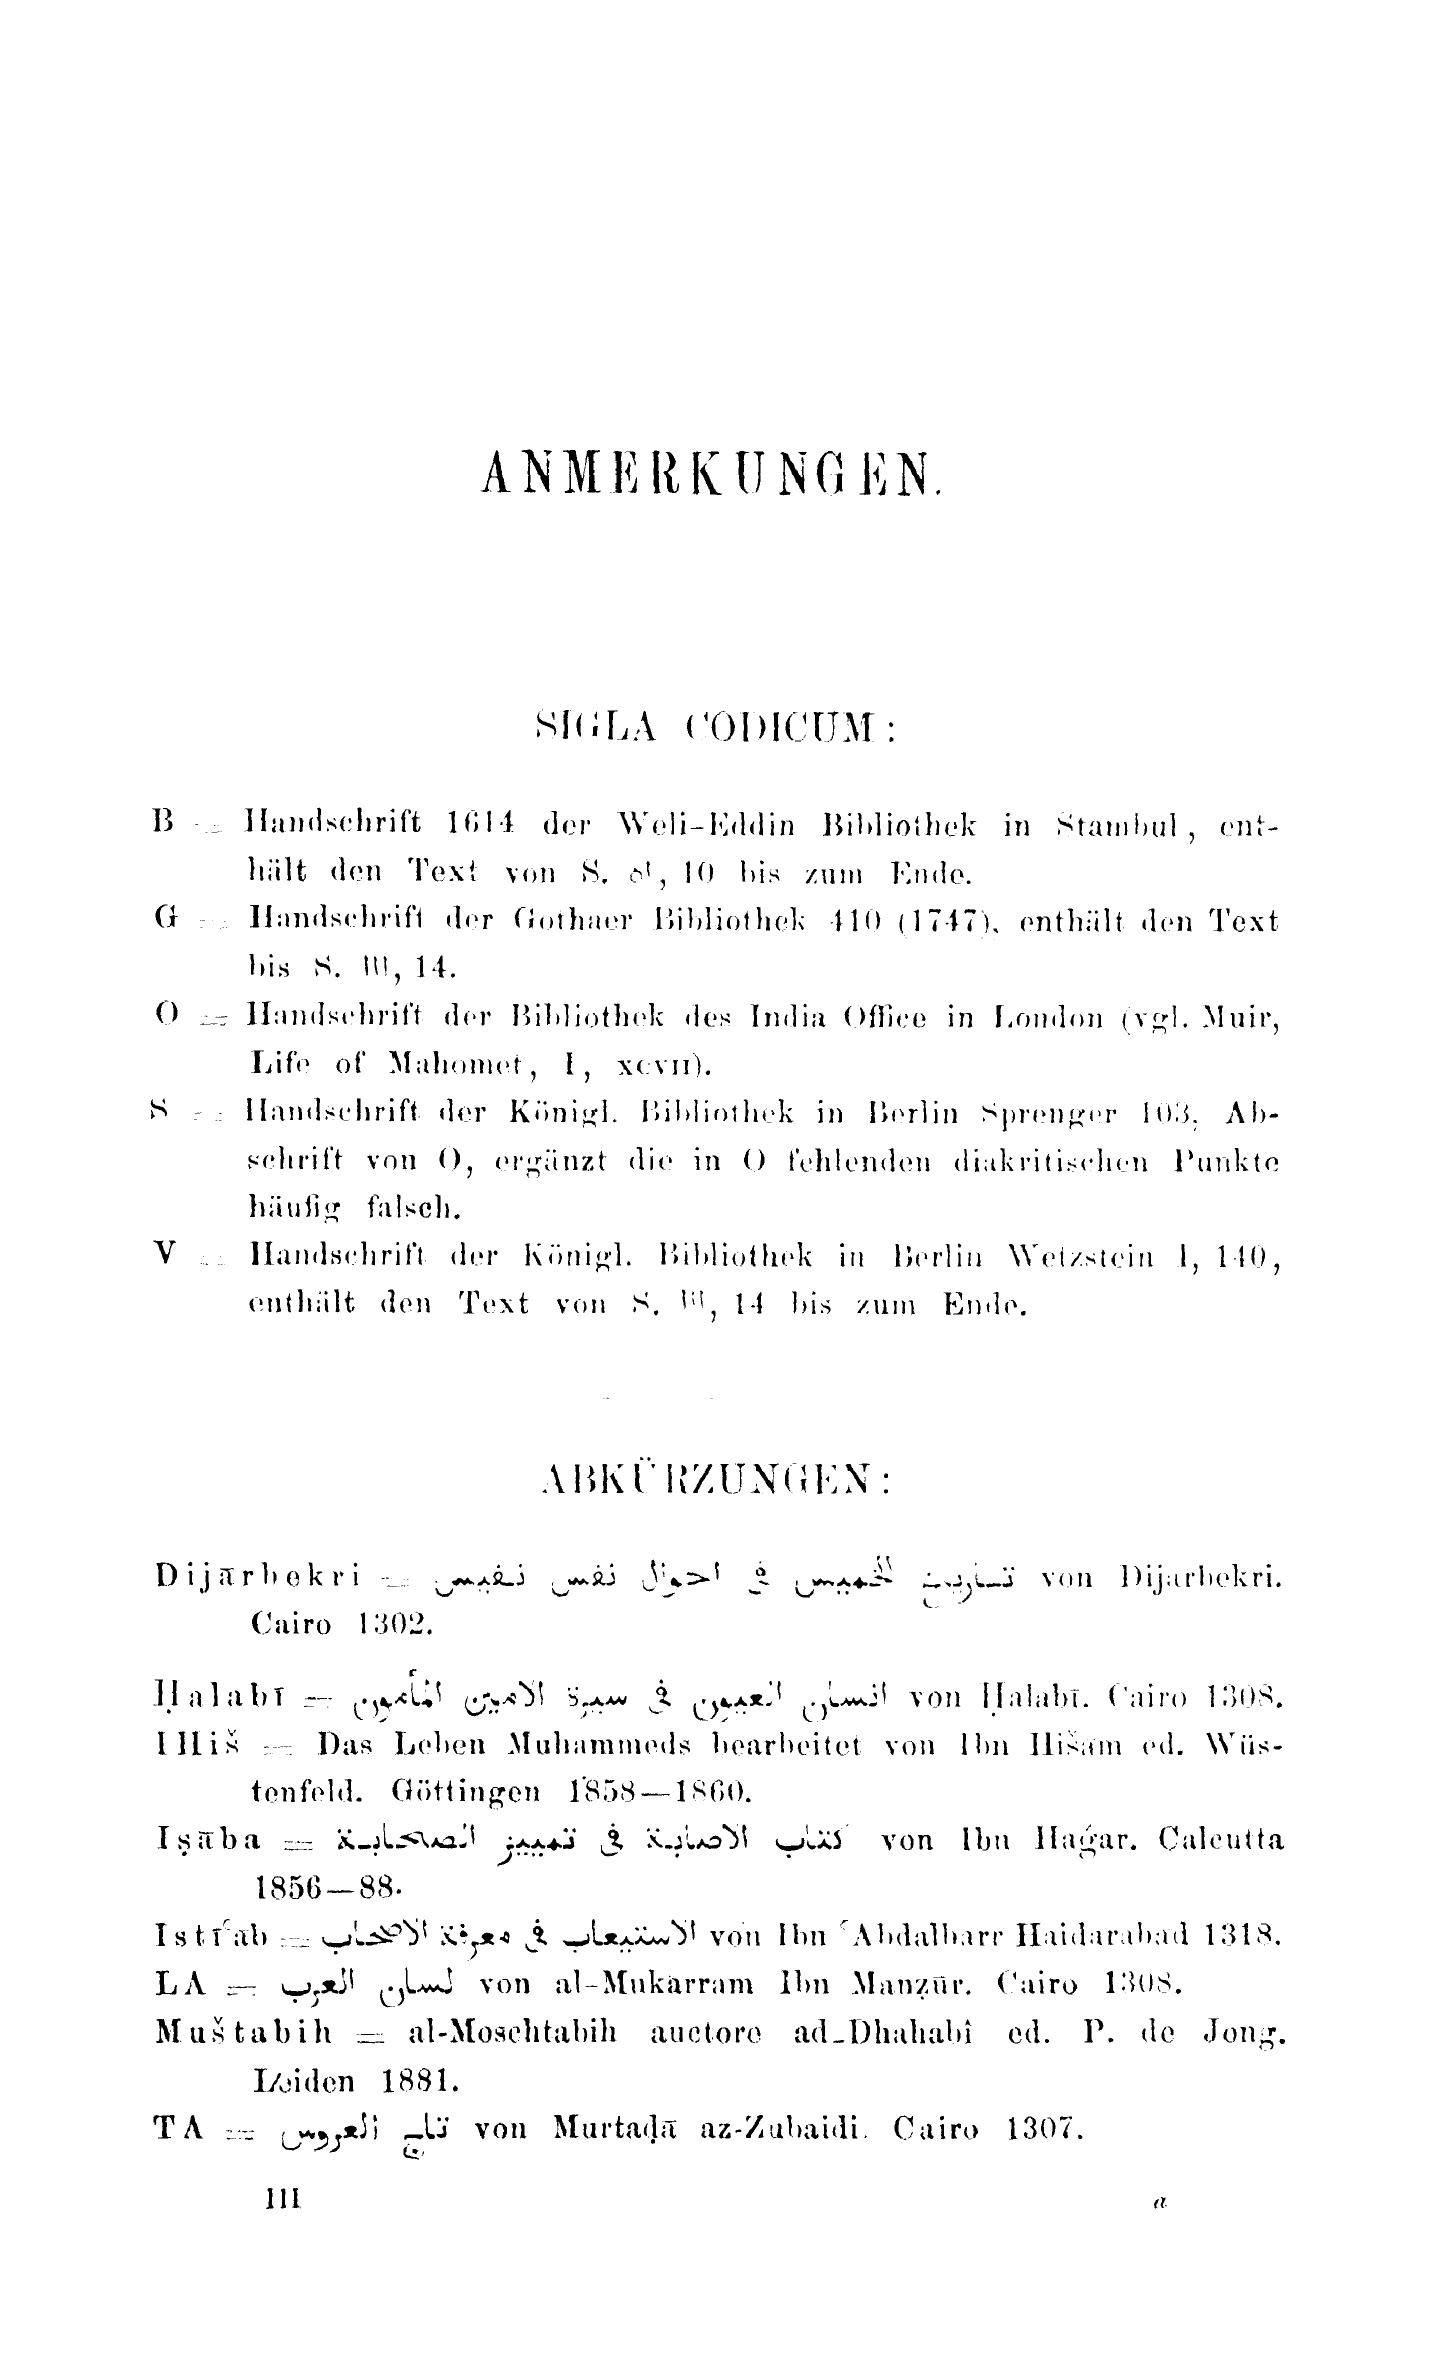 ANMERKUNGEN.
SIGLA CODICUM:
B = Handschrift 1614 der Weli-Eddin Bibliothek in Stambul, ent-
hält den Text von S. ٥١, 10 bis zum Ende.
G = Handschrift der Gothaer Bibliothek 410 (1747), enthält den Text
bis S. , 14.
O = Handschrift der Bibliothek des India Office in London (vgl. Muir,
Life of Mahomet, I, XCVII).
S = Handschrift der Königl. Bibliothek in Berlin Sprenger 103, Ab-
schrift von O, ergänzt die in O fehlenden diakritischen Punkte
häufig falsch.
V = Handschrift der Königl. Bibliothek in Berlin Wetzstein I, 140,
enthält den Text von S. , 14 bis zum Ende.
ABKÜRZUNGEN:
Dijārbekri = تاريخ الخميس فى احوال نفس نفيس von Dijārbekri.
Cairo 1302.
Ḥalabī = انسان العيون فى سيرة الامين المأمون von Ḥalabī. Cairo 1308.
IHiš = Das Leben Muhammeds bearbeitet von Ibn Hišām ed. Wüs-
tenfeld. Göttingen 1858—1860.
Iṣāba = كتاب الاصابة فى تمييز الصحابة von Ibn Haǵar. Calcutta
1856—88.
Istīʿāb = الاستيعاب فى معرفة الاصحاب von Ibn ʿAbdalbarr Haidarabad 1318.
LA = لسان العرب von al-Mukarram Ibn Manẓūr. Cairo 1308.
Muštabih = al-Moschtabih auctore ad-Dhahabî ed. P. de Jong.
Leiden 1881.
TA = تاج العروس von Murtaḍā az-Zubaidi. Cairo 1307.
III a